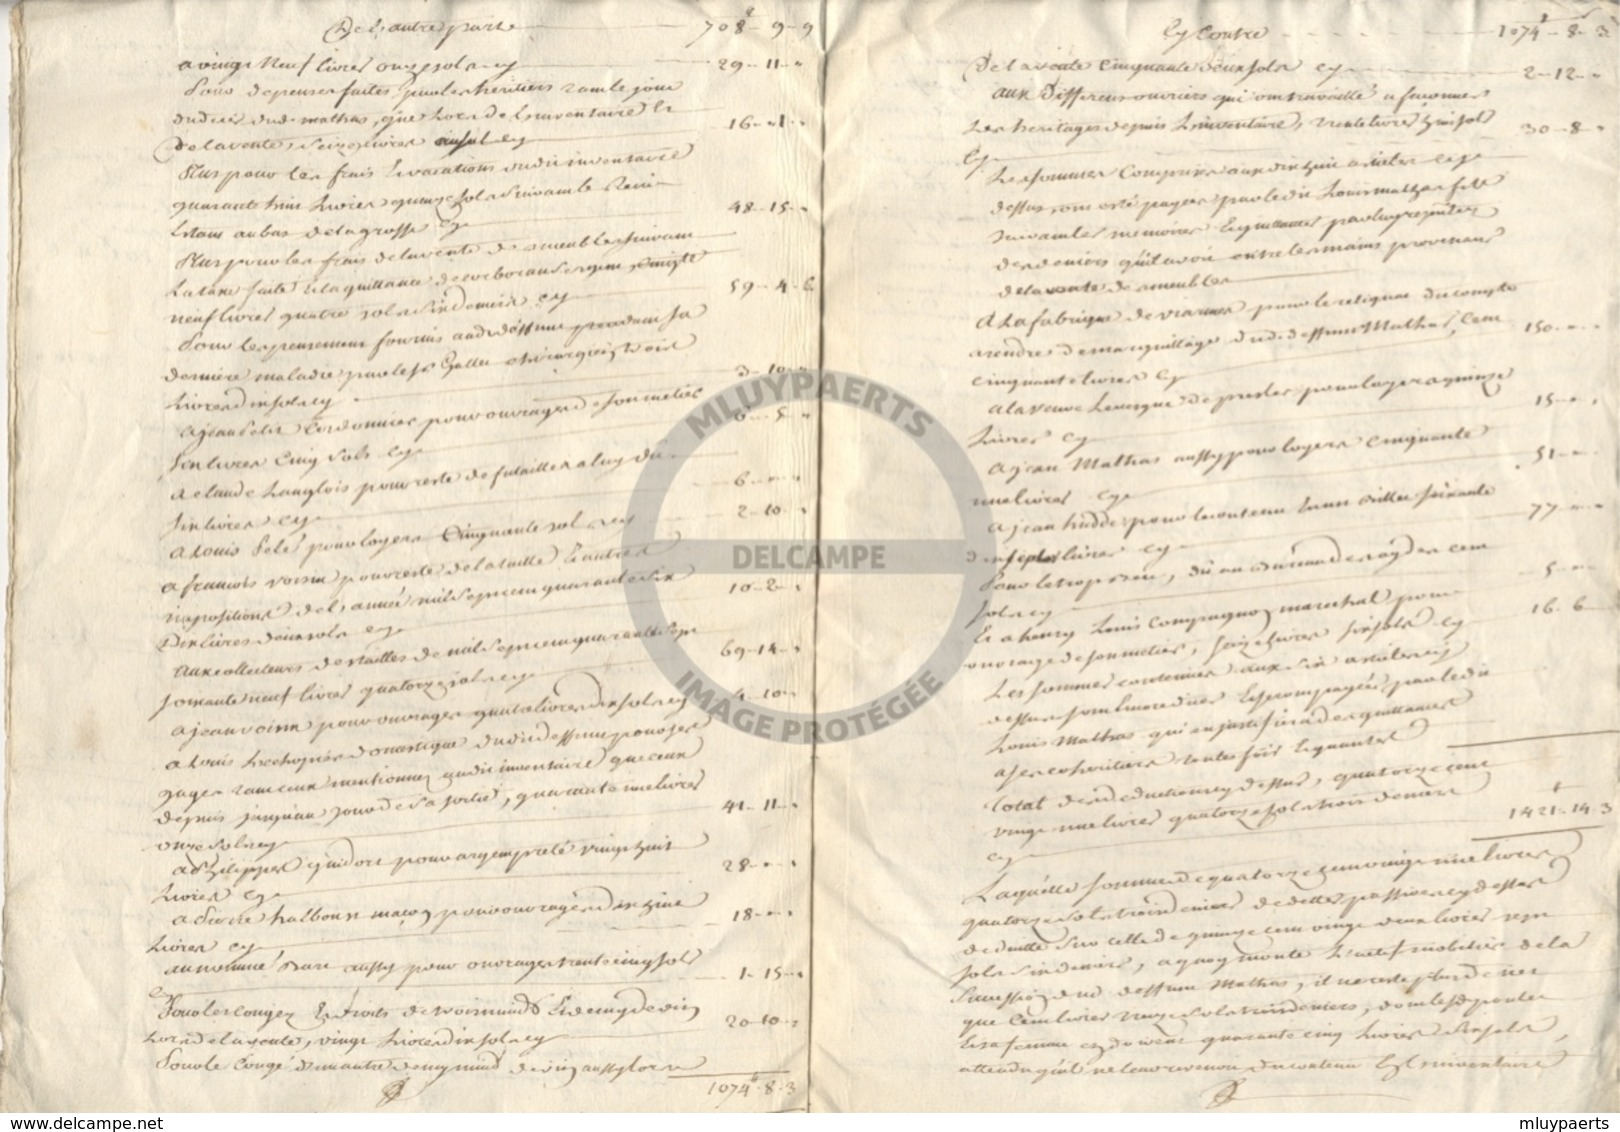 De l'autre part 708 - 9 - 9
a vingt neuf livres onze sols cy 29 - 11 - "
Pour depenses faites par les heritiers tant le jour
du deces dud. mathas, que lors de l'inventaire et
de la vente, seize livres un sol cy 16 - 1 - "
Plus pour les frais et vacations dudit inventaire
quarante huit livres quinze sols suivant le
etant au bas de la grosse cy 48 - 15 - "
Plus pour les frais de la vente de meubles suivant
la taxe faite et la quittance
neuf livres quatre sols six deniers cy 59 - 4 - 6
Pour les pensements fournis aud. deffunt pendant sa
derniere maladie par le sr Gallet chirurgien trois
livres dix sols cy 3 - 10 - "
a jean Petit Cordonnier pour ouvrages de son métier
six livres cinq sols cy 6 - 5 - "
a claude Langlois pour reste de futailles a luy du
six livres cy 6 - " - "
a Louis Pelé pour loyers cinquante sols cy 2 - 10 - "
a francois voisin pour reste de la taille et autres
impositions de l'année mil sept cent quarante six
Dix livres deux sols cy 10 - 2 - "
aux collecteurs des tailles de mil sept cent quarante sept
soixante neuf livres quatorze sols cy 69 - 14 - "
a jean voisin pour ouvrages quatre livres dix sols cy 4 - 10 - "
a Louis domestique dudit deffunt pour ses
gages tant ceux mentionnez audit inventaire que ceux
depuis jusqu'au jour de sa sortie, quarante une livres
onze sols cy 41 - 11 - "
a Philippes pour argent preté vingt huit
livres cy 28 - " - "
a Pierre maçon pour ouvrages dix huit
livres cy 18 - " - "
au nommé aussy pour ouvrages trente cinq sols
cy 1 - 15 - "
Pour les congez et droits de trois muids et demy de vin
lors de la vente, vingt livres dix sols cy 20 - 10 - "
Pour le congé d'un autre demy muid de vin aussy lors
1074 - 8 - 3
Cy Contre 1074 - 8 - 3
De la vente cinquante deux sols cy 2 - 12 - "
aux differens ouvriers qui ont travaillé a façonner
les heritages depuis l'inventaire, trente livres huit sols
cy 30 - 8 - "
Les sommes comprises aux dix huit articles cy
dessus ont été payées par led. Louis Mathas
suivant les memoires et quittances par luy representez
des deniers qu'il avoit entre les mains provenans
de la vente de meubles
A la fabrique de viarmes pour le reliquat du compte
a rendre de marguillage dud. deffunt Mathas, cent
cinquante livres cy 150 - " - "
a la veuve Levesque de presles pour loyers quinze
livres cy 15 - " - "
a jean Mathas aussy pour loyers cinquante
une livres cy 51 - " - "
a jean pour le contenu en un billet soixante
dix sept livres cy 77 - " - "
cent
sols cy 5 - " - "
Et a henry Louis Compagnon marechal pour
ouvrage de son métier, seize livres six sols cy 16 - 6
Les sommes contenues aux six articles cy
dessus
Louis Mathas qui en justifiera de quittances
a ses coheritiers toutes fois et quantes
Total des deductions cy dessus, quatorze cent
vingt une livres quatorze sols trois deniers
cy 1421 - 14 - 3
Laquelle somme de quatorze cent vingt une livres
quatorze sols trois deniers de dettes passives cy dessus
deduitte sur celle de quinze cent vingt deux livres sept
sols six deniers, a quoy monte l'actif mobilier de la
succession dud. deffunt Mathas, il ne reste plus de net
que Cent livres treize sols trois deniers, dont led.
et sa femme doivent quarante cinq livres six sols,
attendu qu'il ne leur revenoit du contenu en l'inventaire
DELCAMPE
MLUYPAERTS
IMAGE PROTÉGÉE
www.delcampe.net
mluypaerts